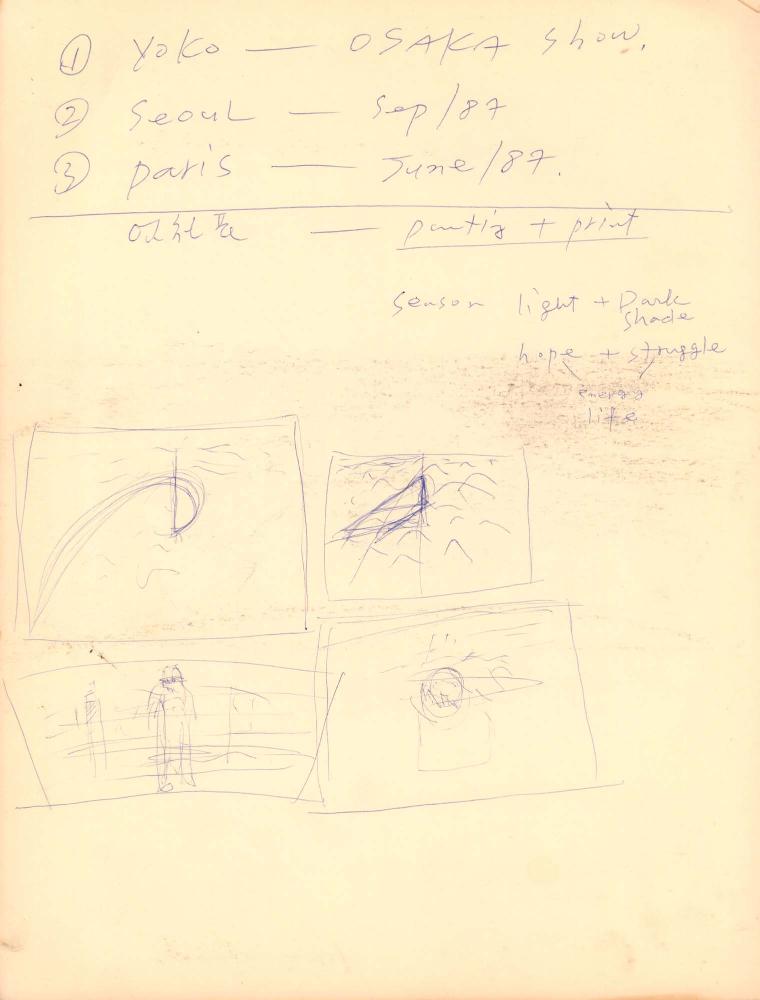 ① Yoko — OSAKA show.
② Seoul — Sep/87
③ paris — June/87.
— pantig + print
season light + Dark
shade
hope + struggle
energy
life